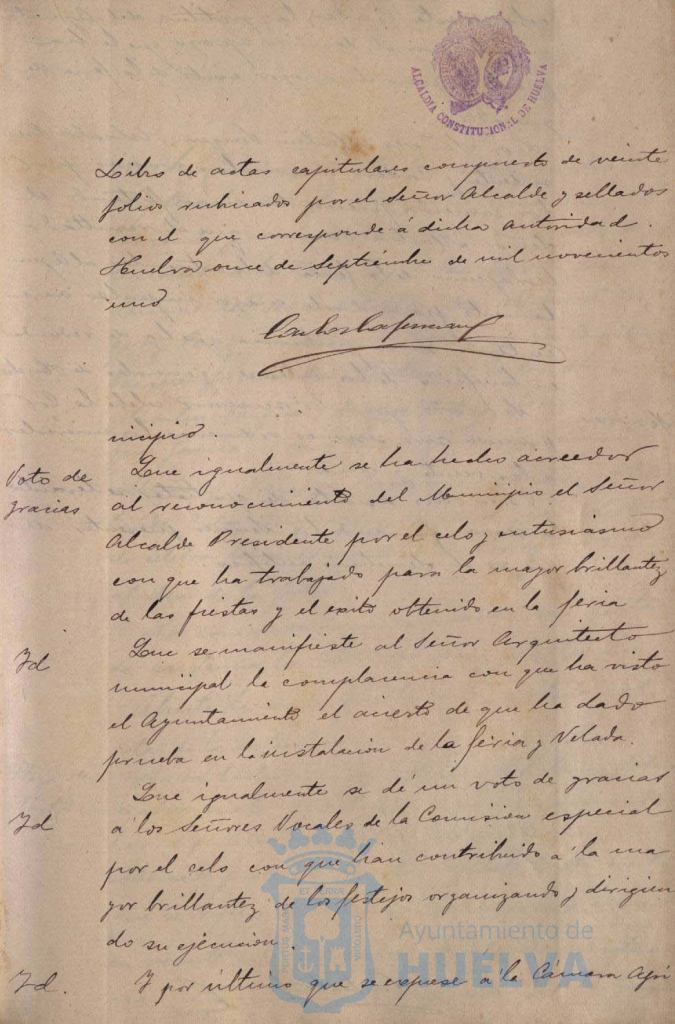 ALCALDIA CONSTITUCIONAL DE HUELVA
Libro de actas capitulares compuesto de veinte
folios rubricados por el Señor Alcalde y sellados
con el que corresponde á dicha autoridad.
Huelva once de Septiembre de mil novecientos
uno
nicipio.
Voto de gracias
Que igualmente se ha hecho acreedor
al reconocimiento del Municipio el Señor
Alcalde Presidente por el celo y entusiasmo
con que ha trabajado para la mayor brillantez
de las fiestas y el exito obtenido en la feria
Id
Que se manifieste al Señor Arquitecto
municipal la complacencia con que ha visto
el Ayuntamiento el acierto de que ha dado
prueba en la instalacion de la feria y Velada.
Que igualmente se dé un voto de gracias
Id
á los Señores Vocales de la Comision especial
por el celo con que han contribuido á la ma
yor brillantez de los festejos organizando y dirigien
do su ejecucion.
Id.
Y por último que se exprese á la Cámara Agri
Ayuntamiento de
HUELVA